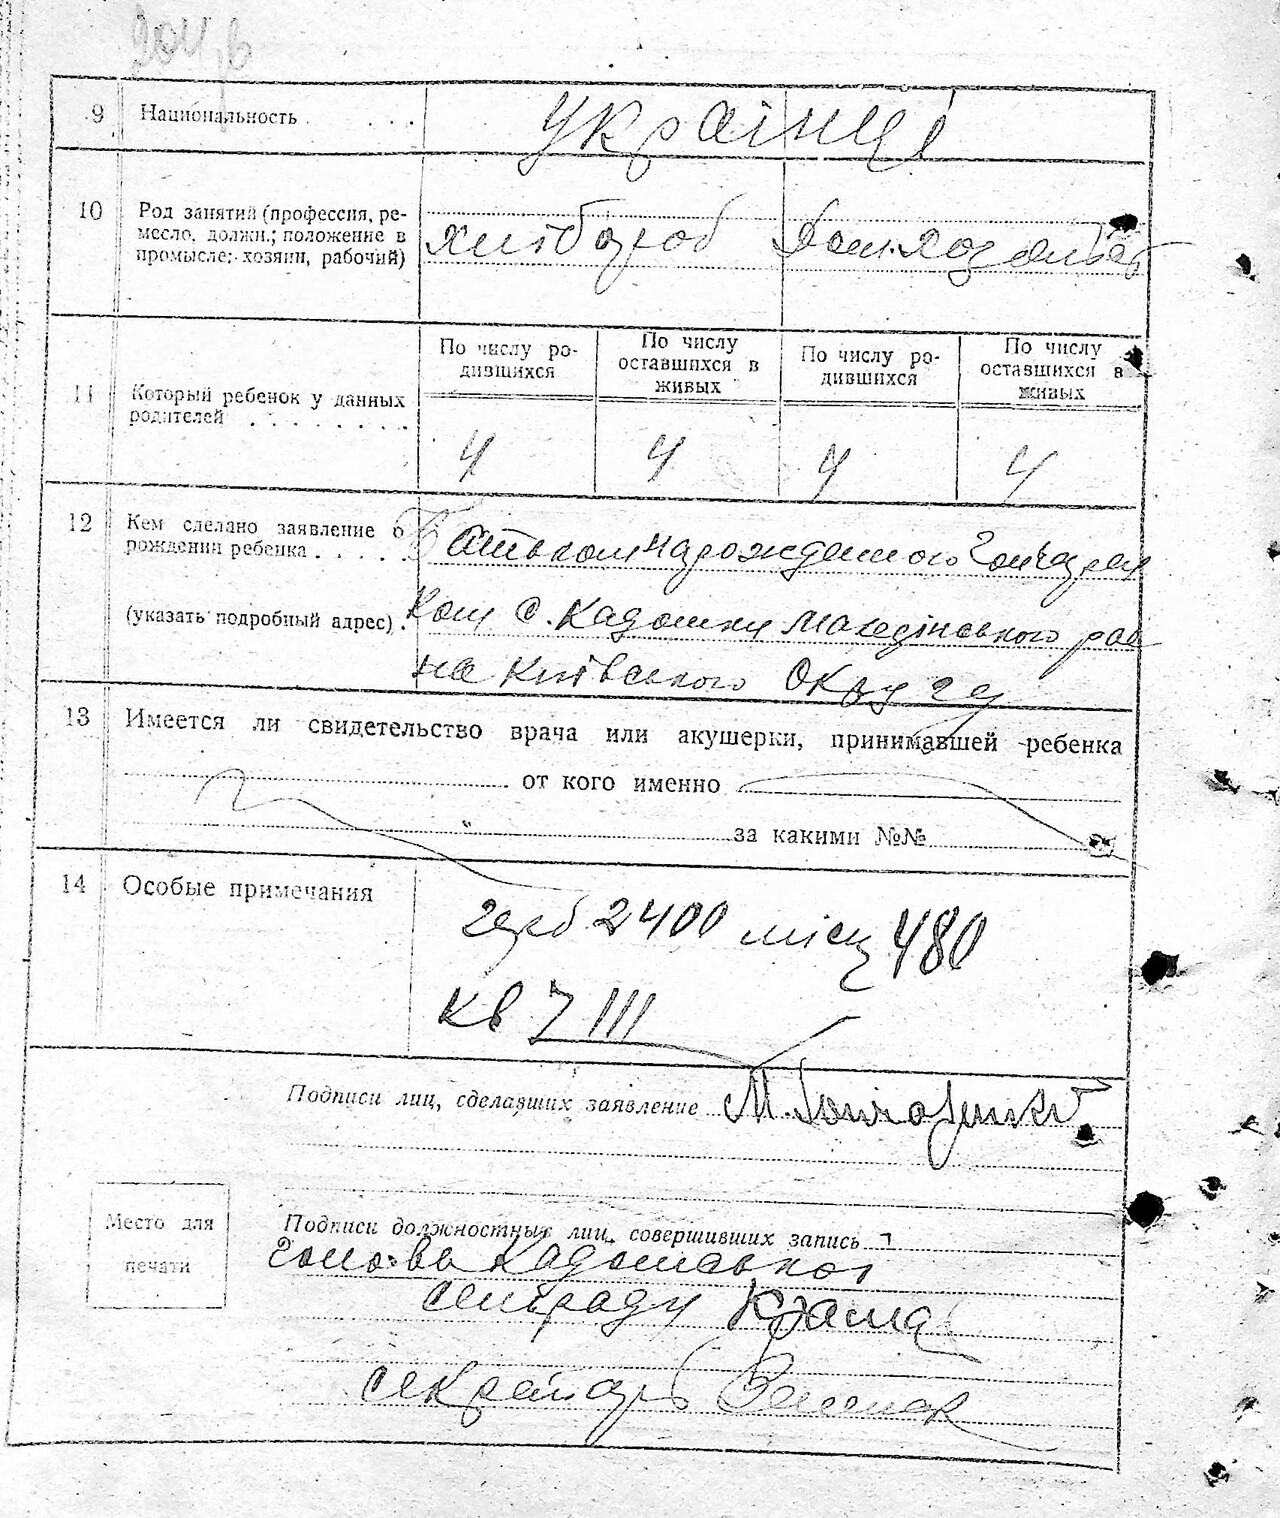 9 Национальность . . . .
Українці
10 Род занятий (профессия, ре-
месло, должн.; положение в
промысле; хозяин, рабочий)
хлібороб Дом.хазяйка
11 Который ребенок у данных
родителей . . . . . . . .
По числу ро-
дившихся
По числу
оставшихся в
живых
По числу ро-
дившихся
По числу
оставшихся в
живых
4 4 4 4
12 Кем сделано заявление о
рождении ребенка . . . .
(указать подробный адрес) .
Батьком народженого Гончарен
ком с. Кадомки Македінського рай
на Київського Округу
13 Имеется ли свидетельство врача или акушерки, принимавшей ребенка
от кого именно
за какими №№
14 Особые примечания
герб 2400 місц 480
кв 7 III
Подписи лиц, сделавших заявление М. Гончаренко
Место для
печати
Подписи должностных лиц, совершивших запись
голова Кадомської
сельради
секретарь